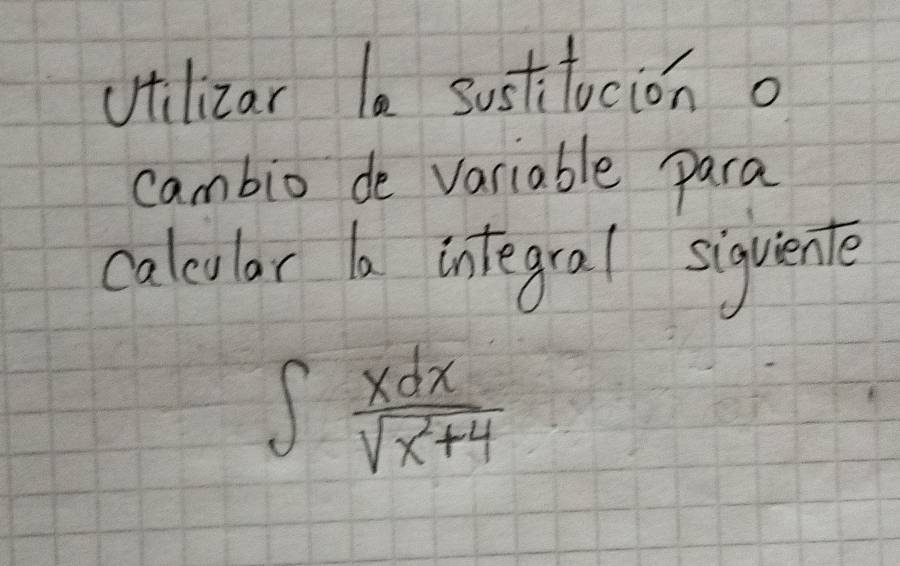 Utilizar la sustitución o
cambio de variable para
calcular la integral siguiente
∫ xdx / √x²+4